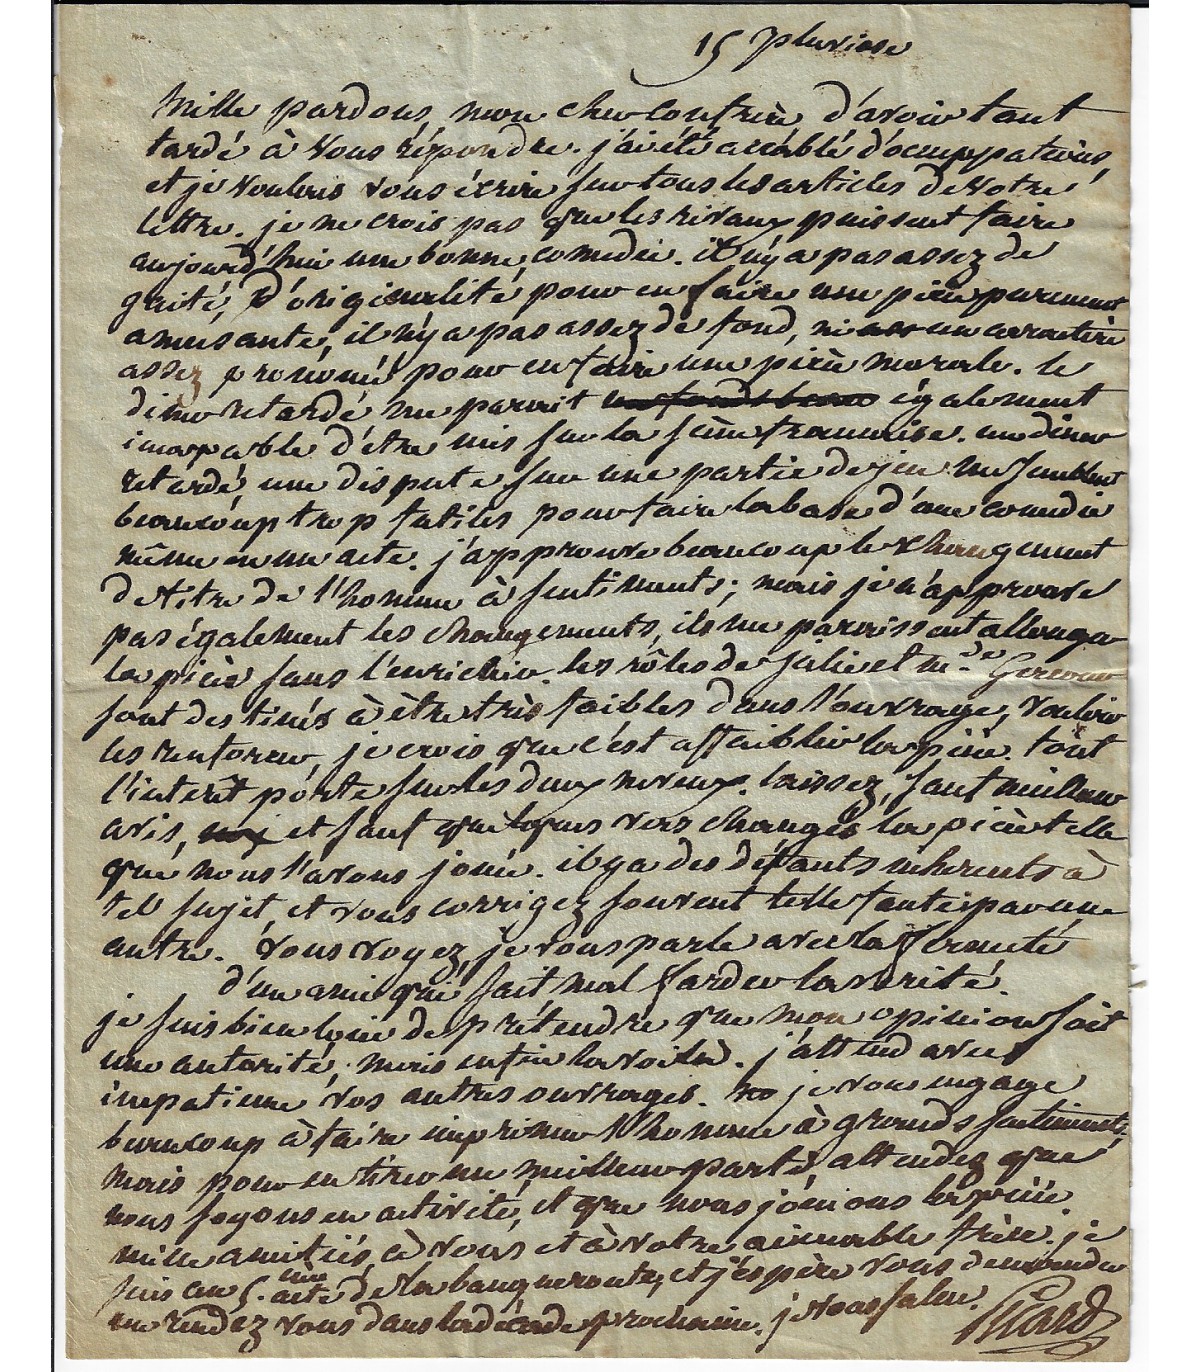 15 pluviose
Mille pardons, mon cher confrère d'avoir tant
tardé à vous répondre. j'ai été accablé d'occuppations,
et je voulais vous écrire sur tous les articles de votre
lettre. je ne crois pas que les rivaux puissent faire
aujourd'hui une bonne comedie. il n'y a pas assez de
gaité, d'originalité pour en faire une pièce purement
amusante, il n'y a pas assez de fond, ni un caractère
assez prononcé pour en faire une pièce morale. le
diner retardé me parait également
incapable d'être mis sur la scène francaise. un diner
retardé, une dispute sur une partie de jeu me semblent
beaucoup trop futiles pour faire la base d'une comedie
même en un acte. j'approuve beaucoup le changement
de titre de l'homme à sentiments; mais je n'approuve
pas également les changements, ils me paroissent allonger
la pièce sans l'enrichir. les rôles de julie et m.de Gercour
sont destinés à être très faibles dans l'ouvrage, vouloir
les renforcer, je crois que c'est affaiblir la pièce. tout
l'interêt porte sur les deux neveux. laissez, sauf meilleur
avis, et sauf quelques vers changés la pièce telle
que nous l'avons jouée. il y a des défauts inherents à
tel sujet, et vous corrigez souvent telle faute par une
autre. vous voyez, je vous parle avec la fermeté
d'un ami qui sait mal farder la vérité.
je suis bien loin de prétendre que mon opinion soit
une autorité; mais enfin la voilà. j'attend avec
impatience vos autres ouvrages. je vous engage
beaucoup à faire imprimer l'homme à grands sentiments;
mais pour en tirer un meilleur parti, attendez que
nous soyons en activité, et que nous jouions la pièce.
mille amitiés à vous et à votre aimable frère. je
suis au 5.eme acte de la banqueroute, et j'espère vous demander
un rendez vous dans la décade prochaine. je vous salue.
Picard